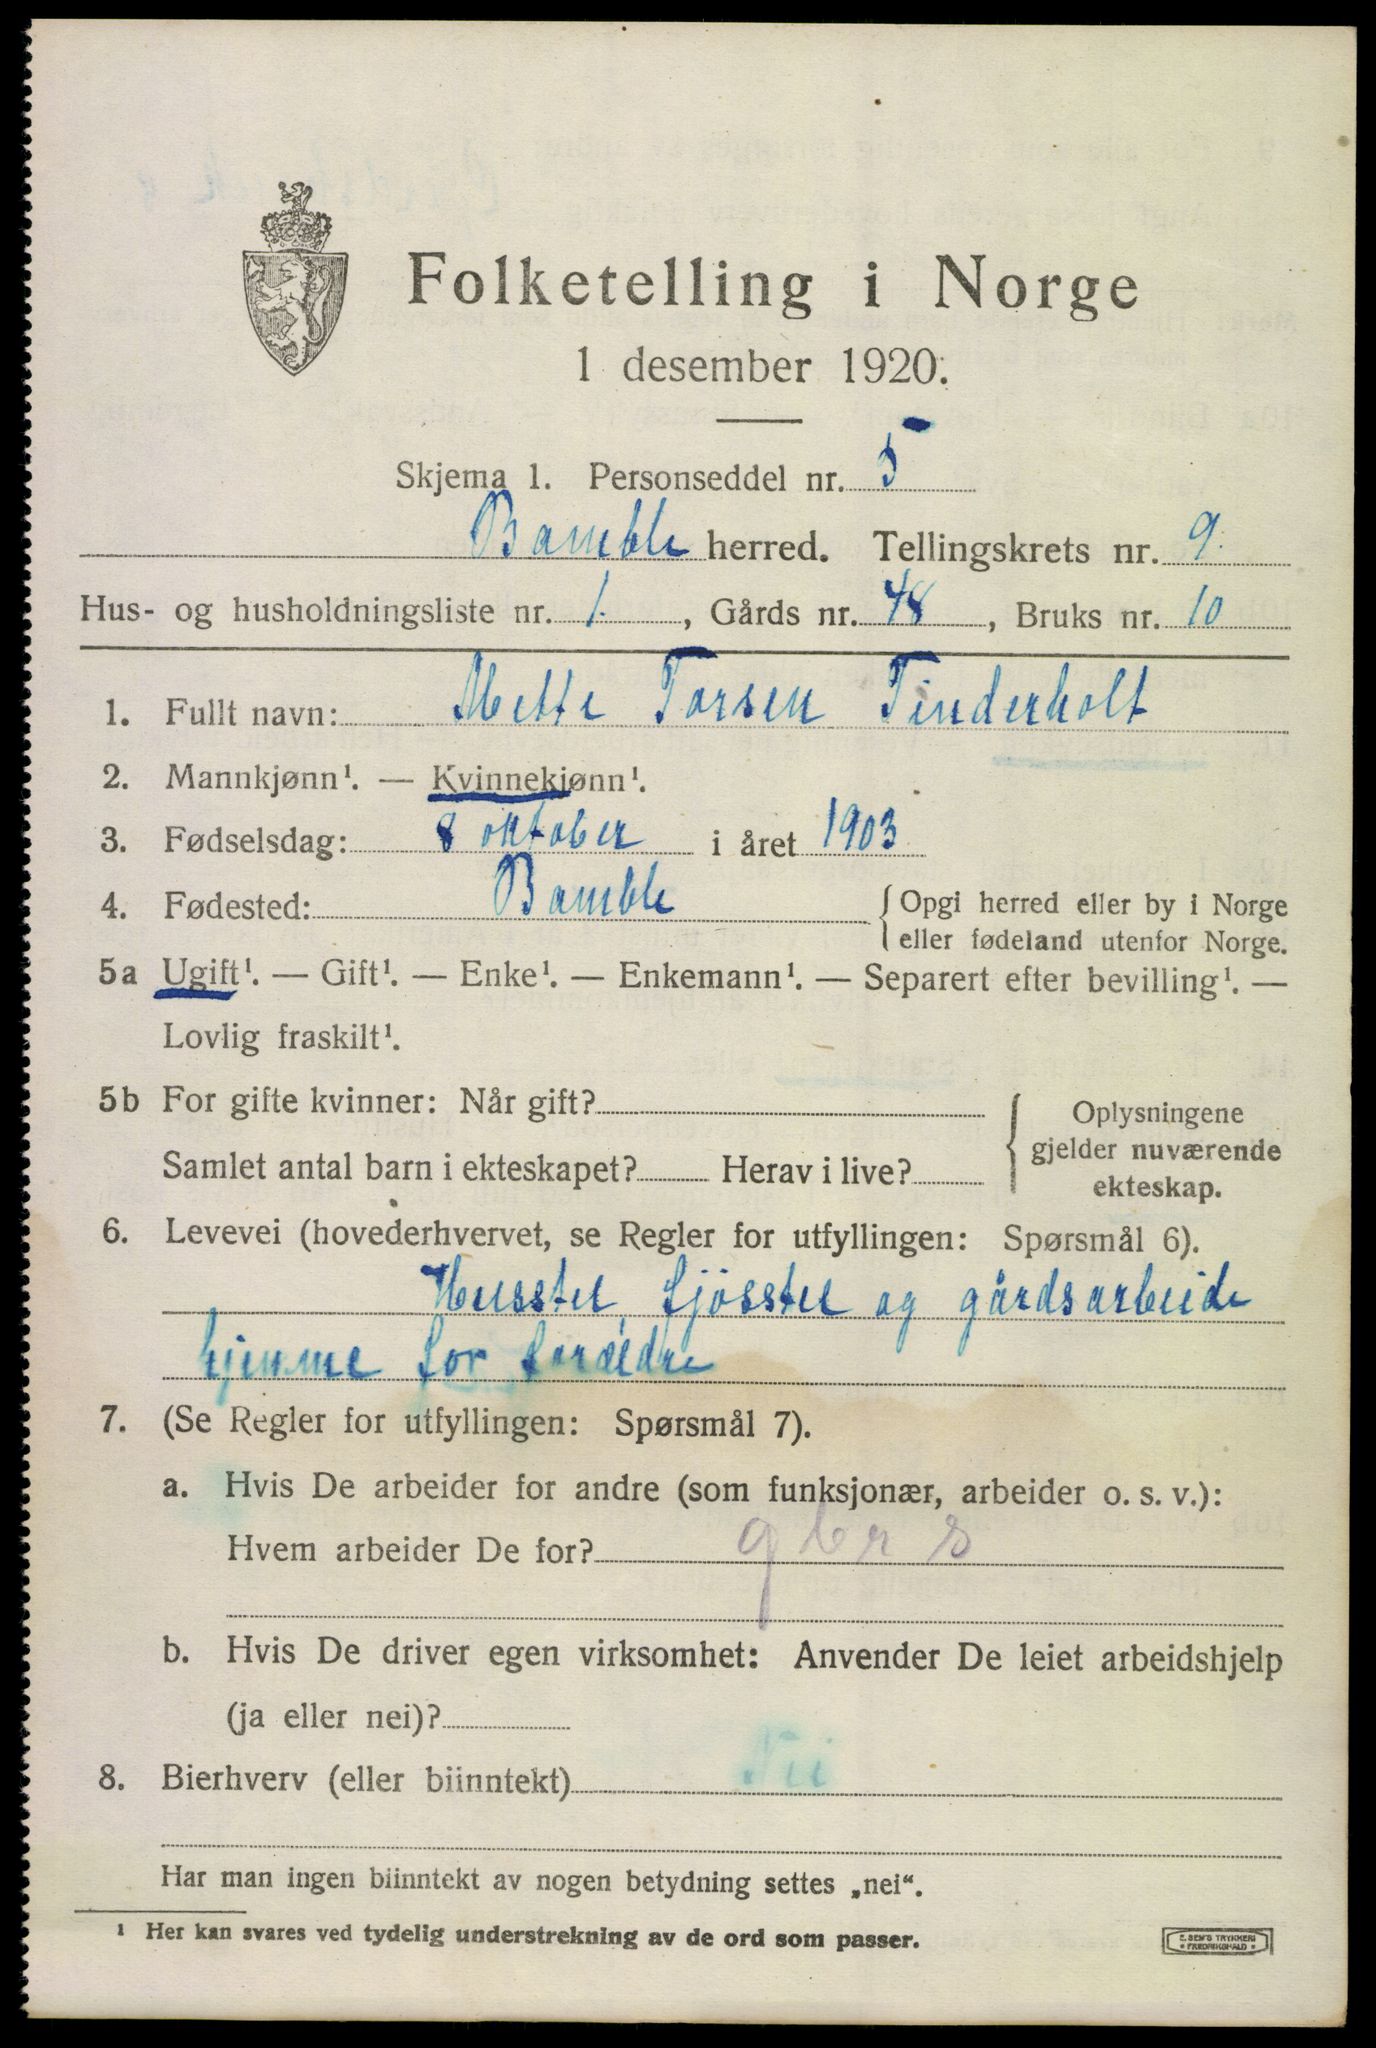 Folketelling i Norge
1 desember 1920.
Skjema 1. Personseddel nr. 5
Bamble herred. Tellingskrets nr. 9.
Hus- og husholdningsliste nr. 1. , Gårds nr. 48 , Bruks nr. 10
1. Fullt navn: Mette Torsen Tinderholt
2. Mannkjønn¹. — Kvinnekjønn¹.
3. Fødselsdag: 8 oktober i året 1903
4. Fødested: Bamble { Opgi herred eller by i Norge
eller fødeland utenfor Norge.
5a Ugift¹. — Gift¹. — Enke¹. — Enkemann¹. — Separert efter bevilling¹. —
Lovlig fraskilt¹.
5b For gifte kvinner: Når gift? { Oplysningene
gjelder nuværende
ekteskap.
Samlet antal barn i ekteskapet? Herav i live?
6. Levevei (hovederhvervet, se Regler for utfyllingen: Spørsmål 6).
Husstel, fjösstel og gårdsarbeide
hjemme for forældre
7. (Se Regler for utfyllingen: Spørsmål 7).
a. Hvis De arbeider for andre (som funksjonær, arbeider o. s. v.):
Hvem arbeider De for? gbrs
b. Hvis De driver egen virksomhet: Anvender De leiet arbeidshjelp
(ja eller nei)?
8. Bierhverv (eller biinntekt) Nei
Har man ingen biinntekt av nogen betydning settes „nei“.
¹ Her kan svares ved tydelig understrekning av de ord som passer.
E. SEM'S TRYKKERI
* FREDRIKSHALD *